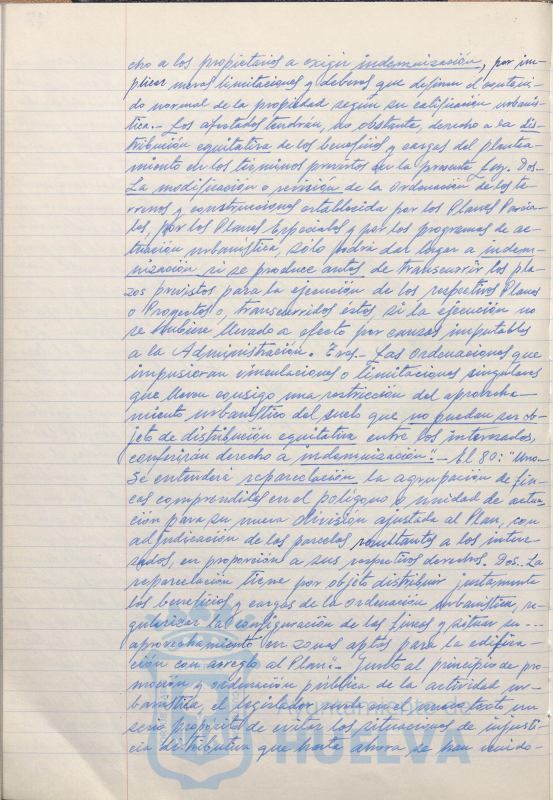 cho a los propietarios a exigir indemnización, por im-
plicar meras limitaciones y deberes que definen el conteni-
do normal de la propiedad según su calificación urbanís-
tica.- Los afectados tendrán, no obstante, derecho a la dis-
tribución equitativa de los beneficios y cargas del planea-
miento en los términos previstos en la presente Ley. Dos.-
La modificación o revisión de la ordenación de los te-
rrenos y construcciones establecida por los Planes Parcia-
les, por los Planes Especiales y por los programas de ac-
tuación urbanística, sólo podrá dar lugar a indem-
nización si se produce antes de transcurrir los pla-
zos previstos para la ejecución de los respectivos Planes
o Proyectos o, transcurridos éstos si la ejecución no
se hubiere llevado a efecto por causas imputables
a la Administración. Tres.- Las ordenaciones que
impusieran vinculaciones o limitaciones singulares
que lleven consigo una restricción del aprovecha-
miento urbanístico del suelo que no puedan ser ob-
jeto de distribución equitativa entre los interesados,
conferirán derecho a indemnización".- El 80: "Uno-
Se entenderá reparcelación la agrupación de fin-
cas comprendidas en el polígono o unidad de actua-
ción para su nueva división ajustada al Plan, con
adjudicación de las parcelas resultantes a los intere-
sados, en proporción a sus respectivos derechos. Dos. La
reparcelación tiene por objeto distribuir justamente
los beneficios y cargas de la ordenación urbanística, re-
gularizar la configuración de las fincas y situar su ---
aprovechamiento en zonas aptas para la edifica-
ción con arreglo al Plan".- Junto al principio de pro-
moción y ordenación pública de la actividad ur-
banística, el legislador en el nuevo texto un
serio propósito de evitar las situaciones de injusti-
cia distributiva que hasta ahora se han venido-
HUELVA